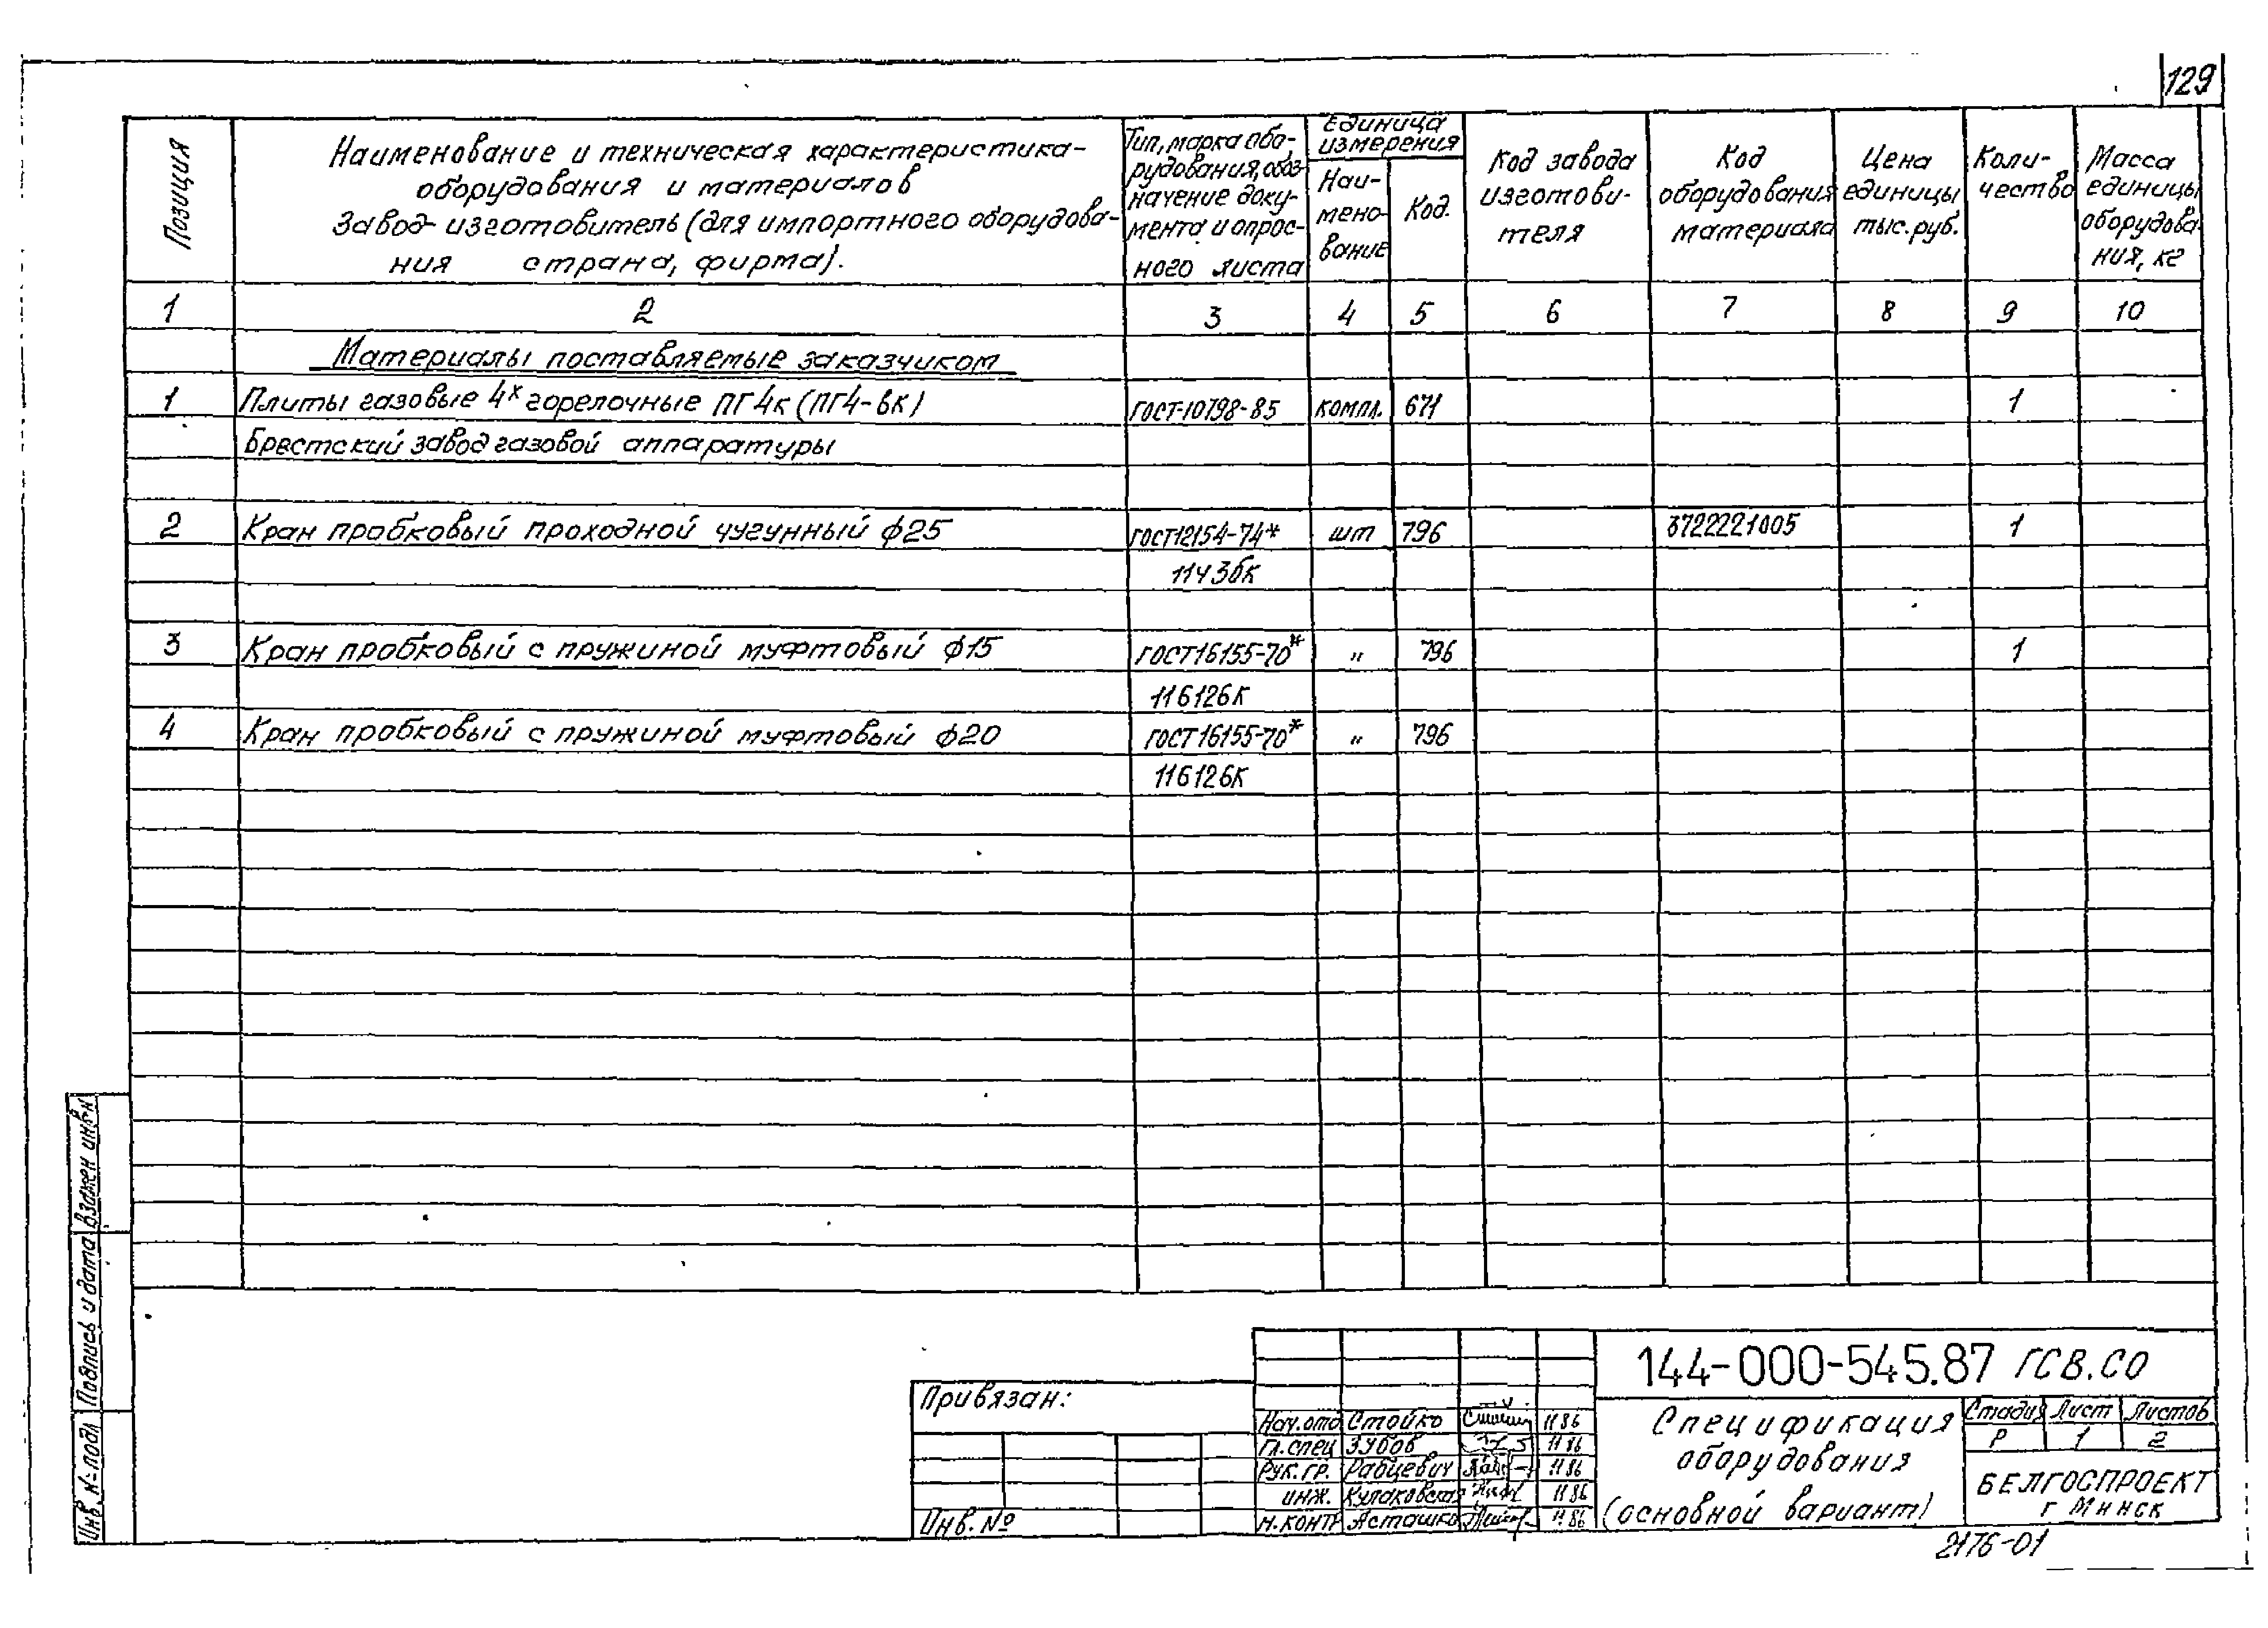 129
Позиция
Наименование и техническая характеристика
оборудования и материалов
Завод-изготовитель (для импортного оборудова-
ния страна, фирма).
Тип, марка обо-
рудования, обоз-
начение доку-
мента и опрос-
ного листа
Единица
измерения
Наи-
мено-
вание
Код.
Код завода
изготови-
теля
Код
оборудования
материала
Цена
единицы
тыс. руб.
Коли-
чество
Масса
единицы
оборудова
ния, кг
1 2 3 4 5 6 7 8 9 10
Материалы поставляемые заказчиком
1 Плиты газовые 4х горелочные ПГ4к (ПГ4-вк) ГОСТ-10798-85 компл. 671 1
Брестский завод газовой аппаратуры
2 Кран пробковый проходной чугунный ф25 ГОСТ12154-74* шт 796 3722221005 1
11ч3бк
3 Кран пробковый с пружиной муфтовый ф15 ГОСТ16155-70* " 796 1
11б12бк
4 Кран пробковый с пружиной муфтовый ф20 ГОСТ16155-70* " 796
11б12бк
Взамен инв.н
Подпись и дата
Инв. № подл
Привязан:
Инв. №
Нач.отд Стойко 11 86
Гл.спец Зубов 11 86
Рук. гр. Рабцевич 11 86
инж. 11 86
н.контр Асташко 11.86
144-000-545.87 ГСВ.СО
Спецификация
оборудования
(основной вариант)
Стадия Лист Листов
Р 1 2
БЕЛГОСПРОЕКТ
г Минск
2176-01